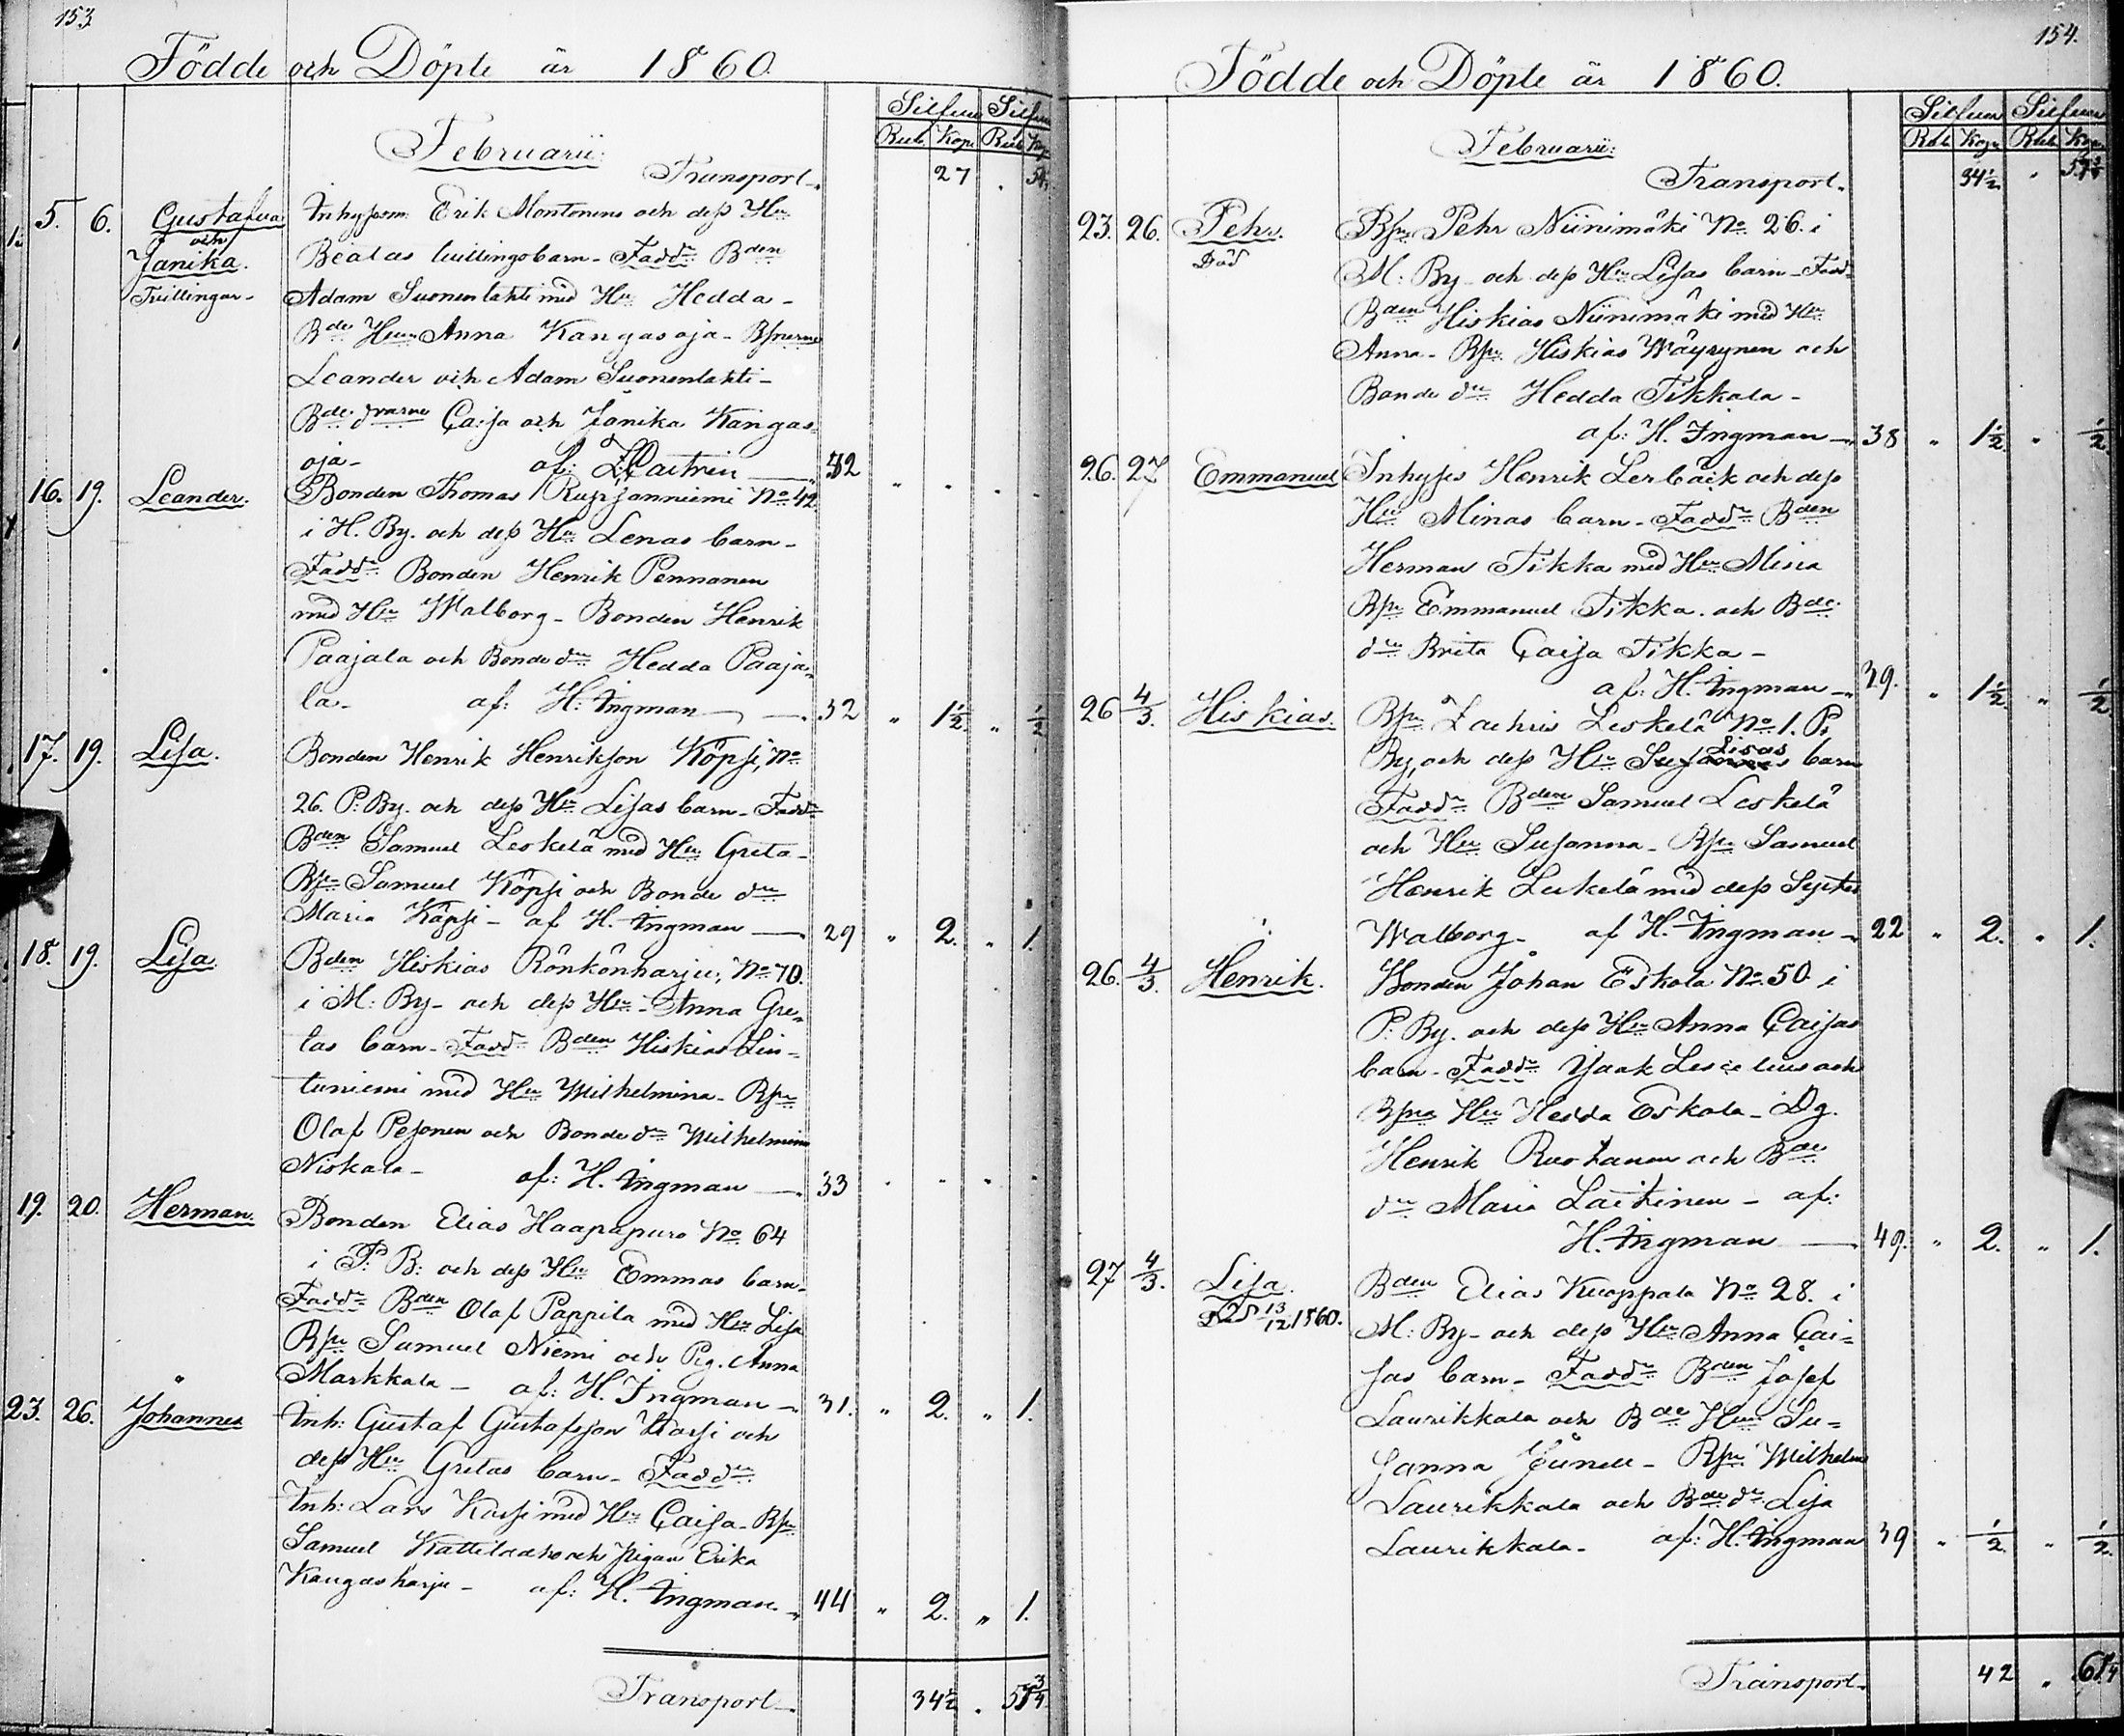 153
Födde och Döpte år 1860.
Silfver Silfver
Rub. Kop. Rub. Kop.
Februarii:
Transport 27 . 54
5. 6. Gustafva och Janika. Tvillingar- Inhysesm. Erik Montonens och dess Hu
Beatas tvillingebarn - Fadd: Bden
Adam Suonenlahti med Hu Hedda -
Bde Hun Anna Kangasoja - Bsnerne
Leander och Adam Suonenlahti -
Bde drarne Cajsa och Janika Kangas-
oja - af: Castrén 42
16. 19. Leander. Bonden Thomas No 42.
i H. By. och dess Hu Lenas barn -
Fadd: Bonden Henrik Pennanen
med Hu Walborg - Bonden Henrik
Paajala och Bonde dn Hedda Paaja-
la - af: H. Ingman 32 " 1½ " ½
17. 19. Lisa. Bonden Henrik Henriksson Köpsi, No
26. P: By. och dess Hu Lisas barn - Fadd:
Bden Samuel Leskelä med Hu Greta -
Bsn Samuel Köpsi och Bonde dn
Maria Köpsi - af H. Ingman 29 " 2. " 1.
18. 19. Lisa. Bden Hiskias Rönkönharju, No 70.
i M: By - och dess Hu - Anna Gre-
tas barn - Fadd: Bden Hiskias Lin-
tuniemi med Hu Wilhelmina - Bsn
Olaf Pesonen och Bonde dn Wilhelmina
Niskala - af: H. Ingman 33
19. 20. Herman. Bonden Elias Haapapuro No 64
i P: B: och dess Hu Emmas barn -
Fadd: Bden Olaf Pappila med Hu Lisa
Bsn Samuel Niemi och Pig. Anna
Markkala - af: H. Ingman 31. " 2. " 1.
23. 26. Johannes Inh: Gustaf Gustafsson Karsi och
dess Hu Gretas barn - Fadd:
Inh: Lars Karsi med Hu Cajsa - Bsn
Samuel Kattilaaho och pigan Erika
Kangasharju - af: H. Ingman. 44 " 2. " 1.
Transport 34½ . 58¾
154.
Födde och Döpte år 1860.
Silfver Silfver
Rub. Kop. Rub. Kop.
Februarii:
Transport. 34½ " 58¾
23. 26. Pehr. Död Bsn Pehr Niinimäki No 26. i
M: By - och dess Hu Lisas barn - Fadd:
Bden Hiskias Niinimäki med Hu
Anna - Bsn Hiskias Wäyrynen och
Bonde dn Hedda Tikkala -
af: H. Ingman 38 " 1½ " ½
26. 27 Emmanuel Inhyses Henrik Lerbäck och dess
Hu Minas barn - Fadd: Bden
Herman Tikka med Hu Mina
Bsn Emmanuel Tikka. och Bde
dn Brita Cajsa Tikka -
af: H. Ingman 39. " 1½ " ½
26 4/3. Hiskias. Bsn Zachris Leskelä No 1. P:
By, och dess Hu Lisas barn
Fadd: Bden Samuel Leskelä
och Hu Susanna - Bsn Samuel
Henrik Leskelä med dess Syster
Walborg - af H. Ingman 22 " 2. " 1.
26. 4/3. Henrik. Bonden Johan Eskola No 50 i
P: By. och dess Hu Anna Cajsas
barn - Fadd: Isaak och
Bsns Hu Hedda Eskola - Dg.
Henrik Ruohanen och Bde
dn Maria Laitinen - af:
H. Ingman 49. " 2. " 1.
27 4/3. Lisa. Död 13/12 1860. Bden Elias Kuoppala No 28. i
M: By - och dess Hu Anna Caj-
sas barn - Fadd: Bden Josef
Laurikkala och Bde Hun Su-
sanna - Bsn Wilhelm
Laurikkala och Bde dn Lisa
Laurikkala - af: H. Ingman 39 " ½ " ½
Transport 42 "